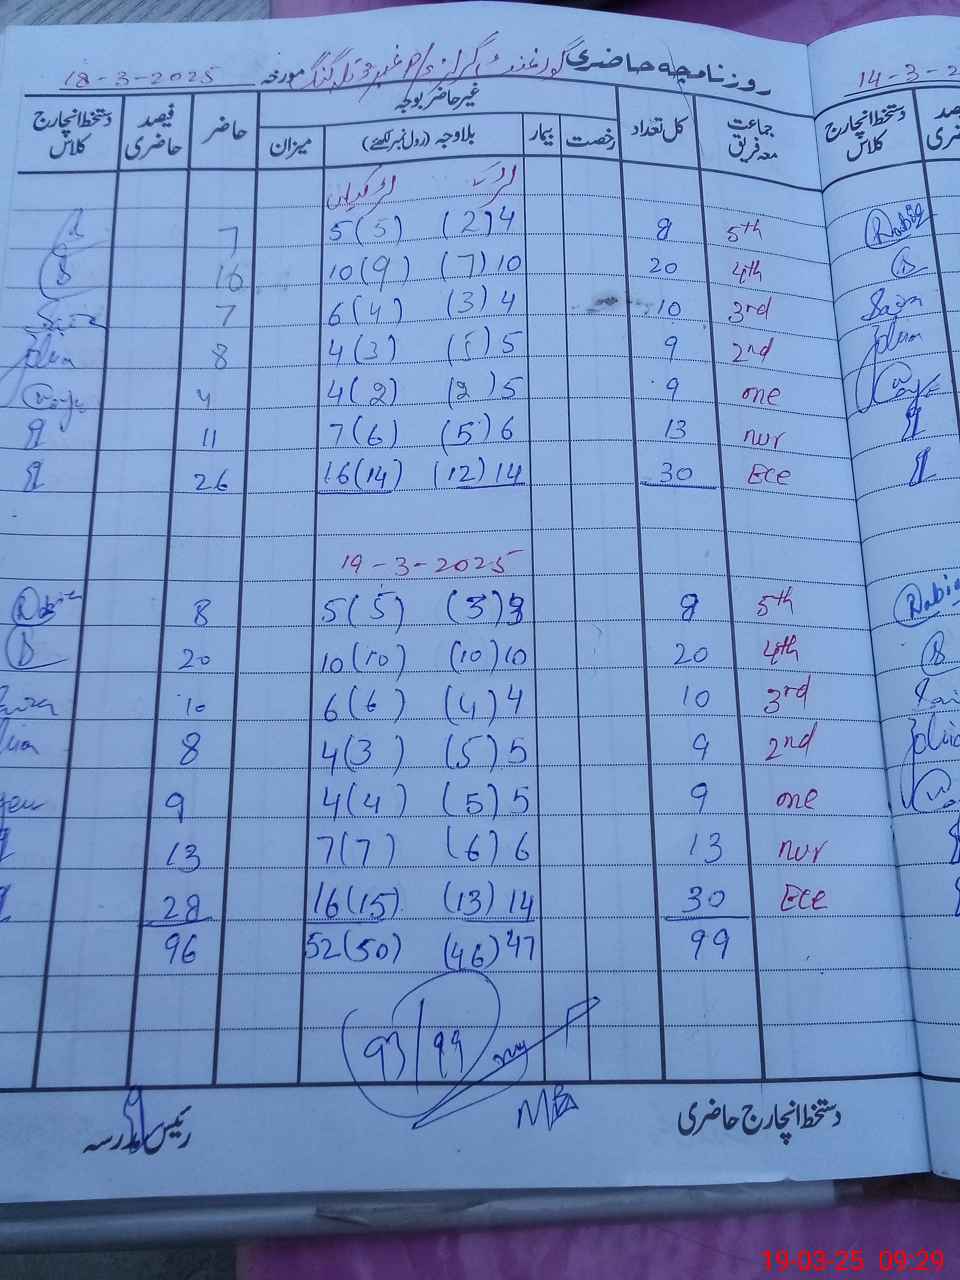 روزنامچہ حاضری گورنمنٹ گرلز مورخہ 18-3-2025
جماعت معہ فریق کل تعداد غیر حاضر بوجہ حاضر فیصد حاضری دستخط انچارج کلاس
رخصت بیمار بلاوجہ (رول نمبر لکھئے) میزان
لڑکے لڑکیاں
7 5(5) (2)4 8 5th
16 10(9) (7)10 20 4th
7 6(4) (3)4 10 3rd
8 4(3) (5)5 9 2nd
4 4(2) (2)5 9 one
11 7(6) (5)6 13 nur
26 16(14) (12)14 30 Ece
19-3-2025
8 5(5) (3)3 8 5th
20 10(10) (10)10 20 4th
10 6(6) (4)4 10 3rd
8 4(3) (5)5 9 2nd
9 4(4) (5)5 9 one
13 7(7) (6)6 13 nur
28 16(15) (13)14 30 Ece
96 52(50) (46)47 99
93/99
دستخط انچارج حاضری رئیس مدرسہ
14-3-2
دستخط انچارج کلاس
Rabia
Saira
Rabia
19-03-25 09:29